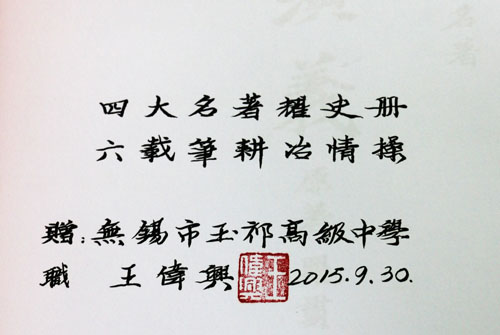 四大名著耀史册
六載筆耕冶情操
贈:無錫市玉祁高級中學
職 王偉興 王偉興 2015.9.30.
名著